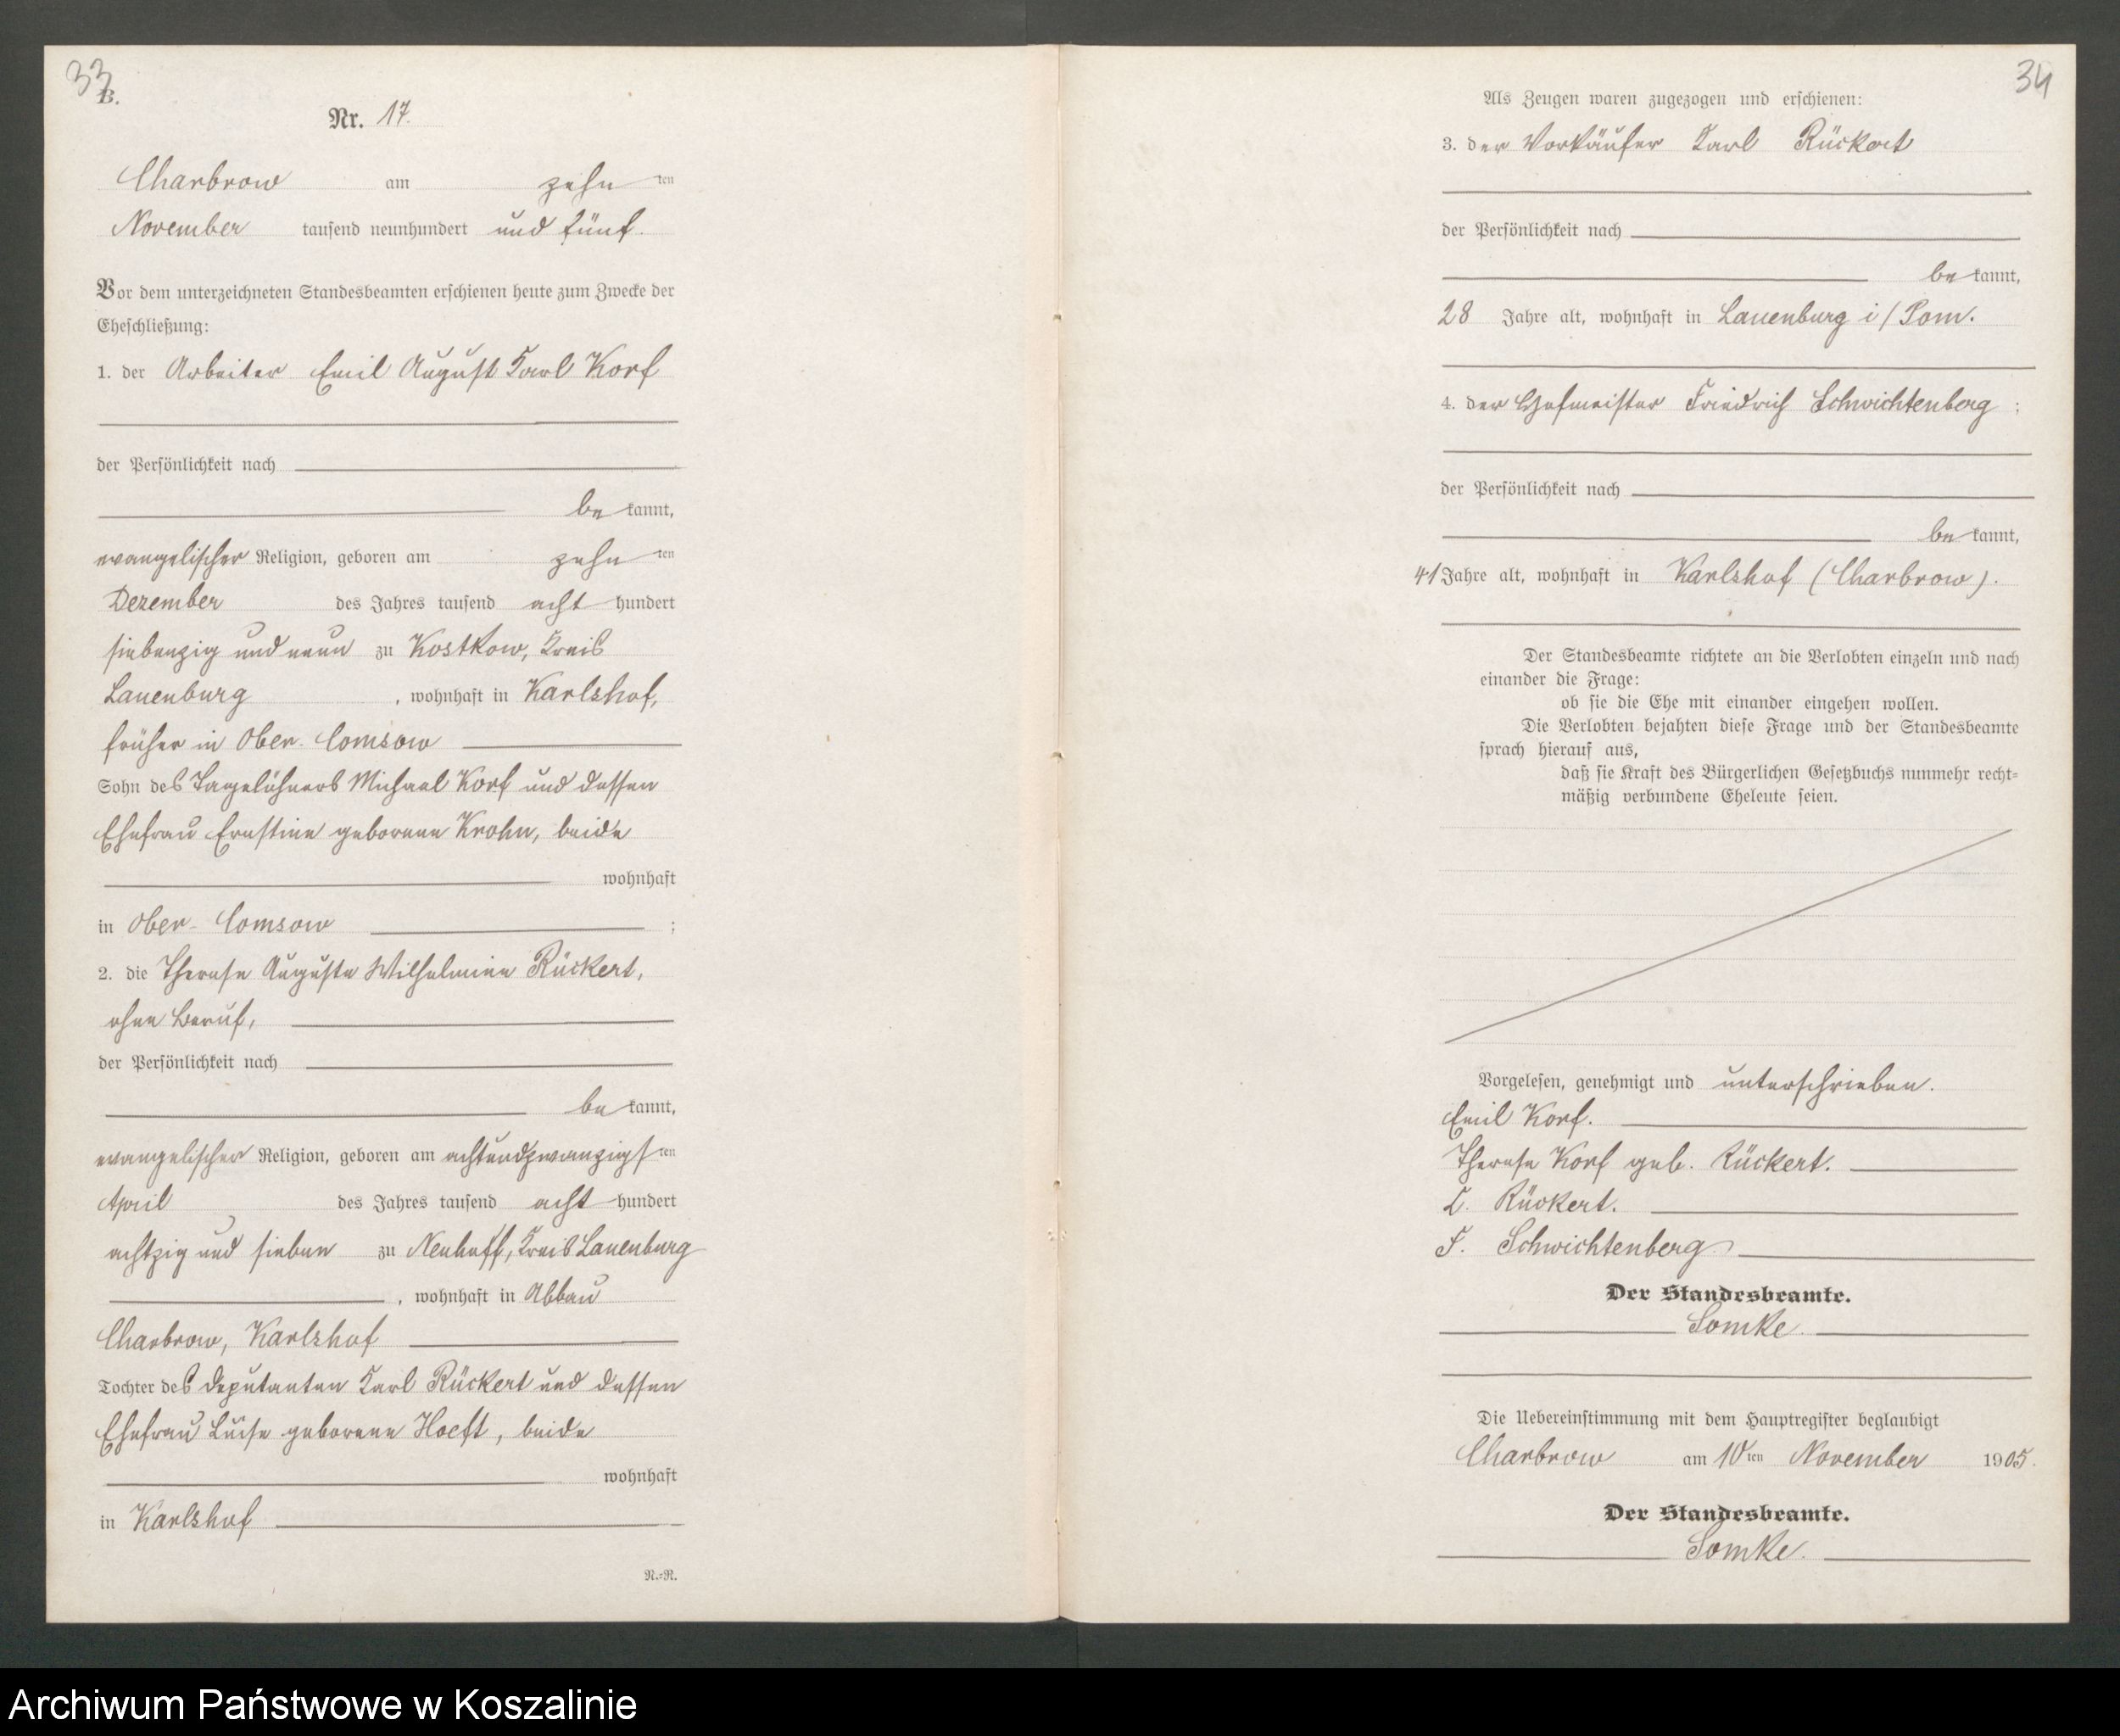 33
B.
Nr. 17.
Charbrow am zehn ten
November tausend neunhundert und fünf.
Vor dem unterzeichneten Standesbeamten erschienen heute zum Zwecke der
Eheschließung:
1. der Arbeiter Emil August Karl Korf
der Persönlichkeit nach
be kannt,
evangelischer Religion, geboren am zehn ten
Dezember des Jahres tausend acht hundert
siebenzig und neun zu Kostkow, Kreis
Lauenburg , wohnhaft in Karlshof,
früher in Ober-Comsow
Sohn des Tagelöhners Michael Korf und dessen
Ehefrau Ernstine geborene Krohn, beide
wohnhaft
in Ober-Comsow ;
2. die Therese Auguste Wilhelmine Rückert,
ohne Beruf,
der Persönlichkeit nach
be kannt,
evangelischer Religion, geboren am achtundzwanzigs ten
April des Jahres tausend acht hundert
achtzig und sieben zu Neuhoff, Kreis Lauenburg
, wohnhaft in Abbau
Charbrow, Karlshof
Tochter des Deputanten Karl Rückert und dessen
Ehefrau Luise geborene Hoeft, beide
wohnhaft
in Karlshof
N.-R.
34
Als Zeugen waren zugezogen und erschienen:
3. der Vorkäufer Karl Rückert
der Persönlichkeit nach
be kannt,
28 Jahre alt, wohnhaft in Lauenburg i/Pom.
4. der Hofmeister Friedrich Schwichtenberg ;
der Persönlichkeit nach
be kannt,
41 Jahre alt, wohnhaft in Karlshof (Charbrow).
Der Standesbeamte richtete an die Verlobten einzeln und nach
einander die Frage:
ob sie die Ehe mit einander eingehen wollen.
Die Verlobten bejahten diese Frage und der Standesbeamte
sprach hierauf aus,
daß sie Kraft des Bürgerlichen Gesetzbuchs nunmehr recht-
mäßig verbundene Eheleute seien.
Vorgelesen, genehmigt und unterschrieben.
Emil Korf.
Therese Korf geb. Rückert.
K. Rückert.
F. Schwichtenberg
Der Standesbeamte.
Somke.
Die Uebereinstimmung mit dem Hauptregister beglaubigt
Charbrow am 10 ten November 1905.
Der Standesbeamte.
Somke.
Archiwum Państwowe w Koszalinie